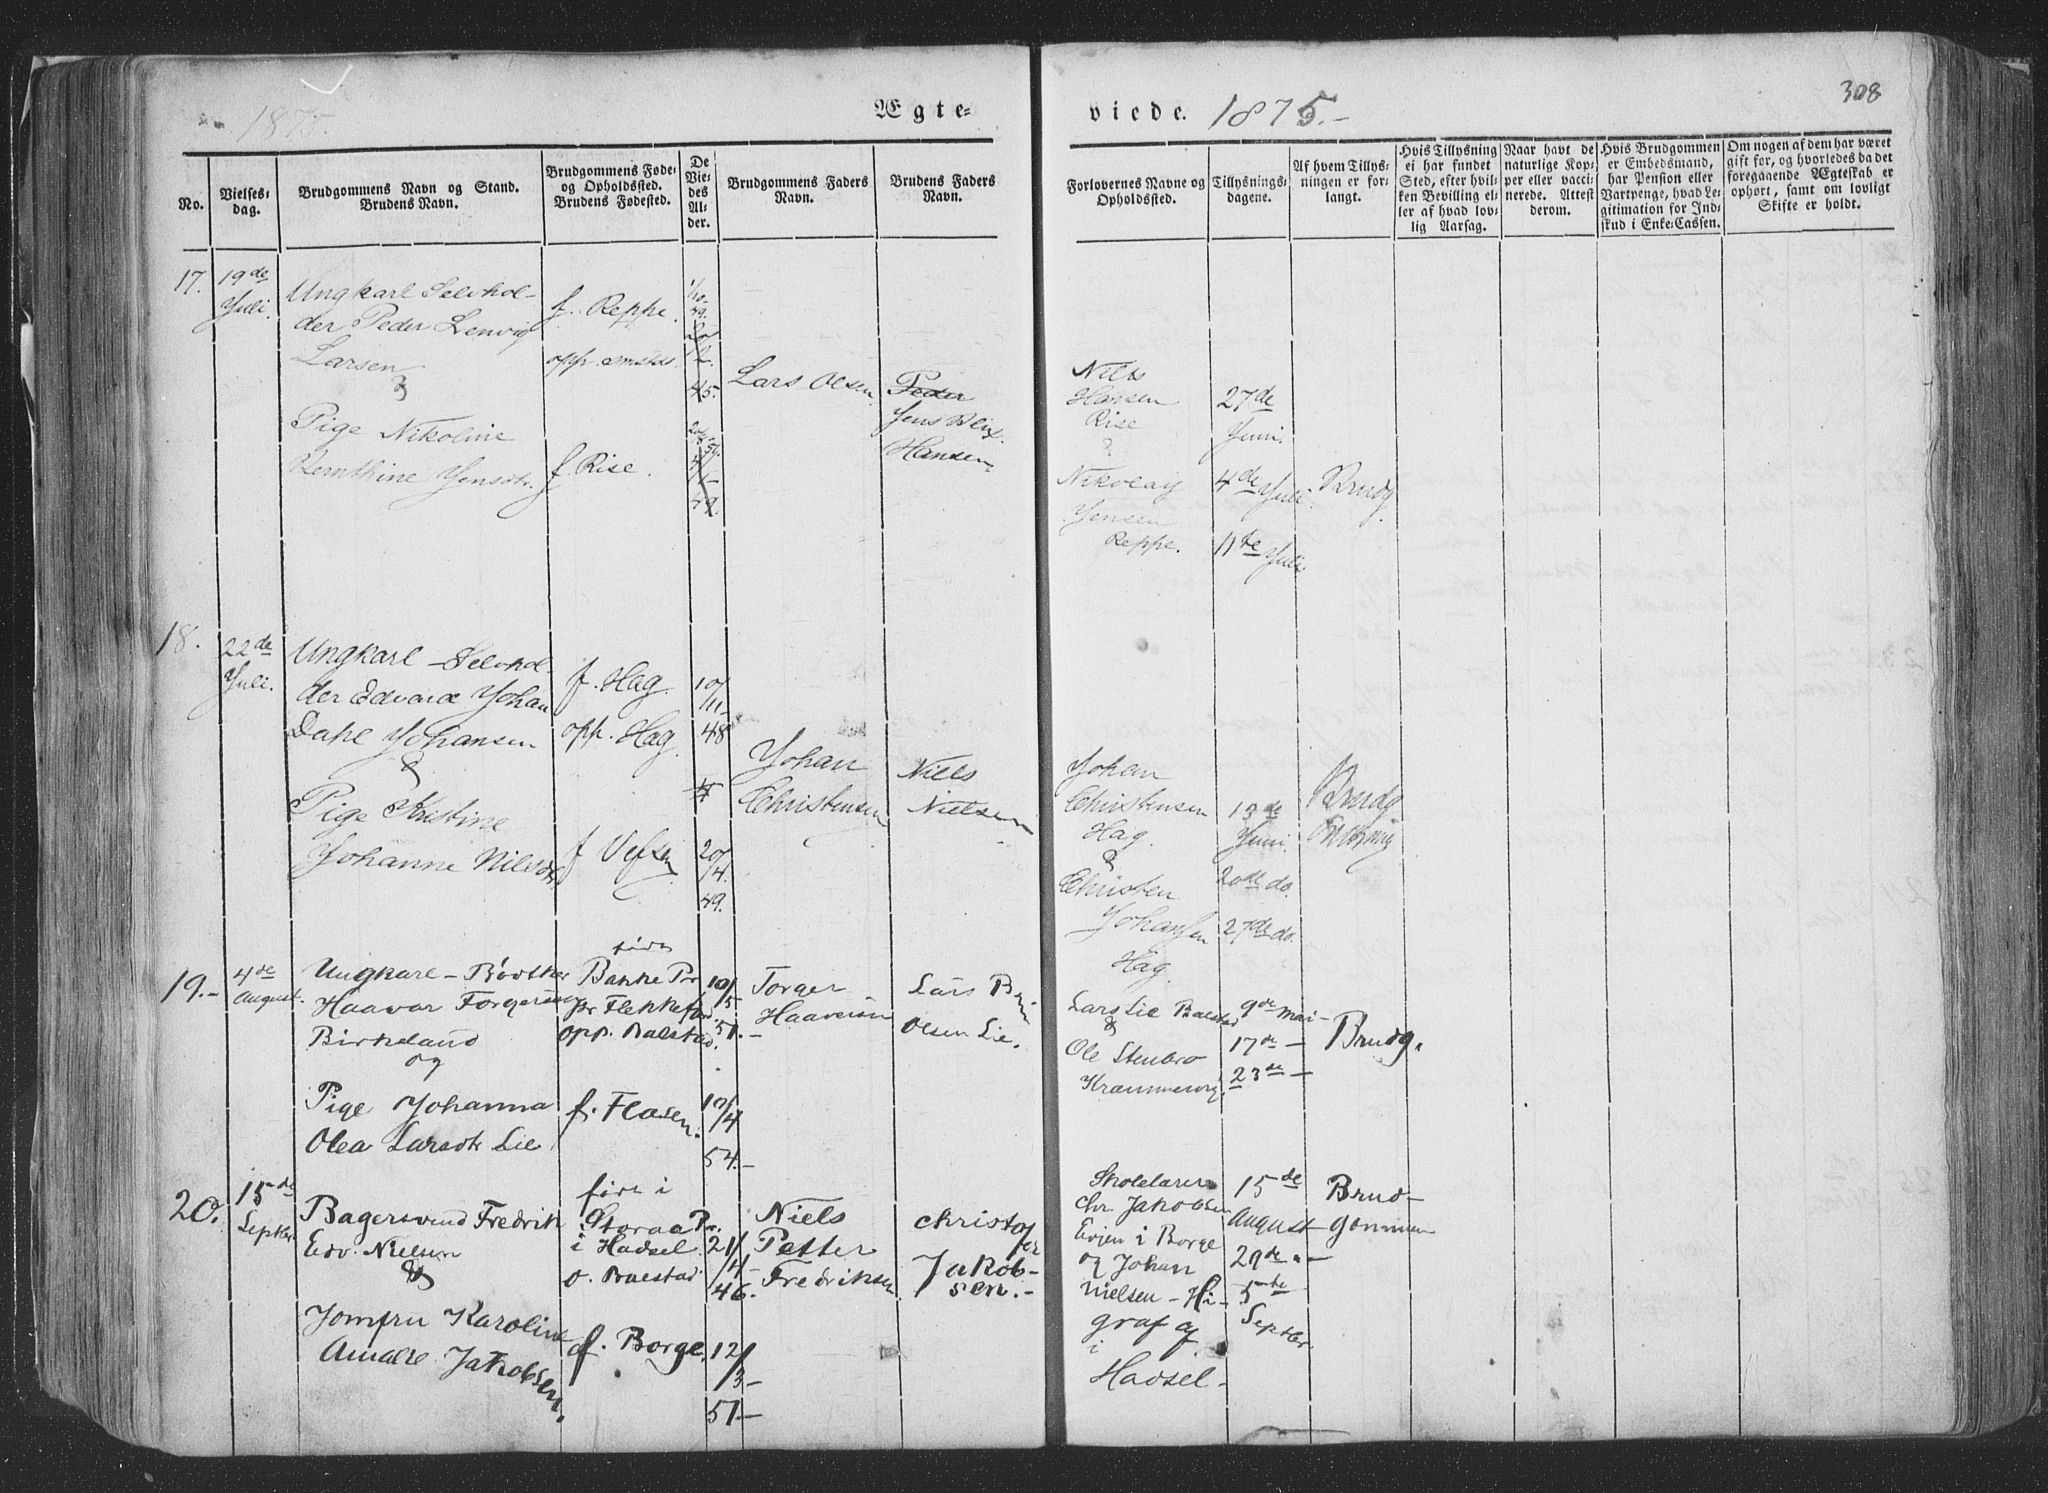 308
1875.
Ægte=
viede. 1875.-
No.
Vielses=
dag.
Brudgommens Navn og Stand.
Brudens Navn.
Brudgommens Føde=
og Opholdssted.
Brudens Fødested.
De
Vie=
des
Al=
der.
Brudgommens Faders
Navn.
Brudens Faders
Navn.
Forlovernes Navne og
Opholdssted.
Tillysnings=
dagene.
Af hvem Tillys=
ningen er for=
langt.
Hvis Tillysning
ei har fundet
Sted, efter hvil=
ken Bevilling el=
ler af hvad lov=
lig Aarsag.
Naar havt de
naturlige Kop=
per eller vacci=
nerede. Attest
derom.
Hvis Brudgommen
er Embedsmand,
har Pension eller
Vartpenge, hvad Le=
gitimation for Ind=
skud i Enke-Cassen.
Om nogen af dem har været
gift før, og hvorledes da det
foregaaende Ægteskab er
ophørt, samt om lovligt
Skifte er holdt.
17.
19de
Juli.
Ungkarl Selvhol-
der Peder Lenvig
Larsen
&
Pige Nikoline
Bernthine Jensdtr.
f. Reppe.
opp.
f. Rise.
1/10-
49.
45.
49.
Lars Olsen
Peder
Jens Blix
Hansen
Niels
Hansen
Rise
&
Nikolay
Jensen
Reppe.
27de
Juni.
4de Juli.
11te Juli.
Brudg.
18.
22de
Juli.
Ungkarl - Selvhol-
der Edvard Johan
Dahl Johansen
&
Pige Kristine
Johanne Nilsdtr
f. Hag.
opp. Hag.
f Vefsen
10/
11-
48
20/
4.
49.
Johan
Christensen
Niels
Nielsen
Johan
Christensen
Hag.
&
Christen
Johansen
Hag
13de
Juni.
20de do.
27de do.
Brudg
19.-
4de
August.
Ungkarl - Bødker
Haavar Torgersen
Birkeland
og
Pige Johanna
Olea Larsdtr Lie
født
Bakke Pr
pr Flekkefjord.
opp. Balstad.
f. Flasen.
10/
5
51.-
10/
4
54.-
Torger
Haaversen
Lars
Olsen Lie.
Lars Lie Balstad
&
Ole Stenbro
Kræmmervig
9de Mai-
17de -
23de -
Brudg.
20.
15de
Septbr
Bagersvend Fredrik
Edv. Nielsen
&
Jomfru Karoline
Amalie Jakobsen.
født i
Storaa Pr.
i Hadsel.
o. Balestad
f. Borge.
21/
11-
46.
12/
3-
51-
Niels
Petter
Fredriksen
Christof
fer
Jakob-
sen.-
Skolelærer
Chr. Jakobsen
Evjen i Borge
og Johan
Nielsen - Hi-
graf af
i
Hadsel-
15de
August
29de "-
5te
Septbr
Brud-
gommen